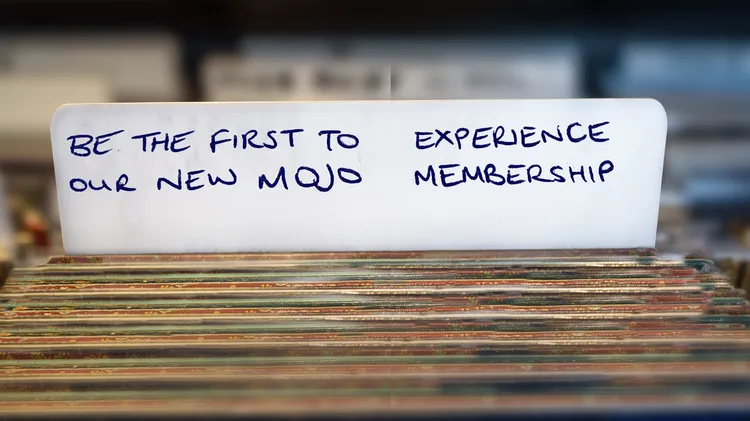 BE THE FIRST TO EXPERIENCE
OUR NEW MOJO MEMBERSHIP